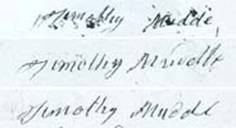 Timothy Mudde
Timothy Mudde
Timothy Mudde